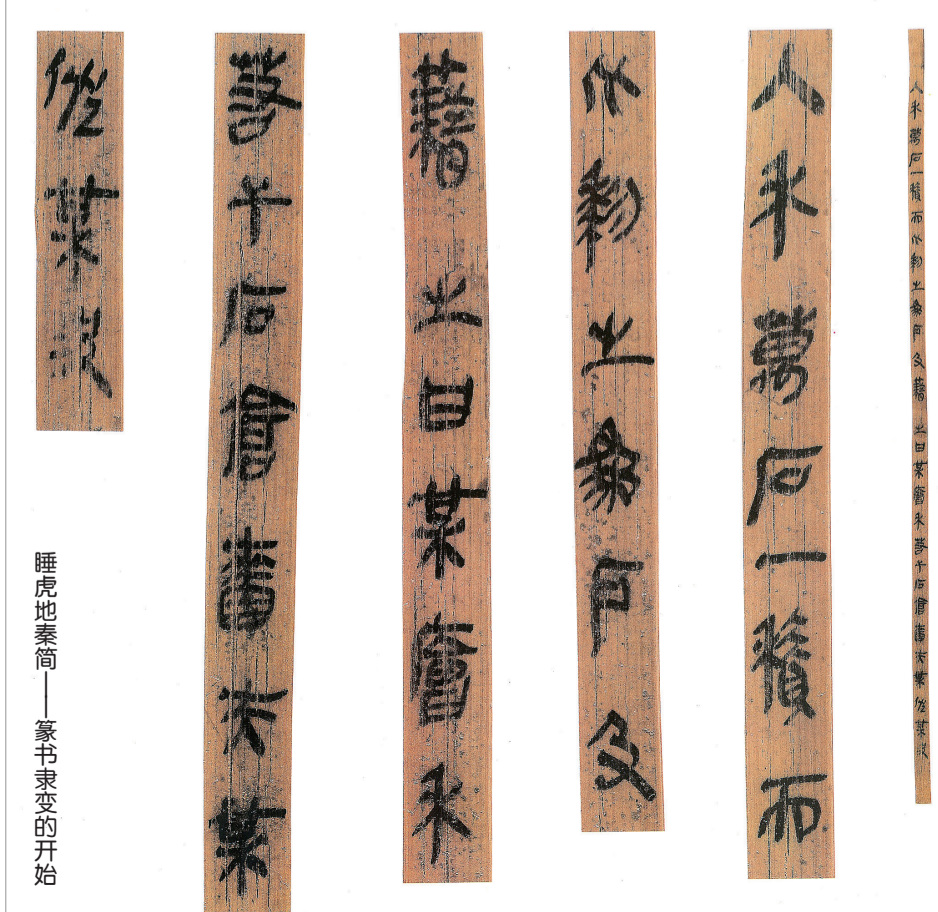 入禾萬石一積而比黎之爲戶及籍之曰某廥禾若干石倉嗇夫某佐某史
入禾萬石一積而
比黎之爲戶及
籍之曰某廥禾
若干石倉嗇夫某
佐某史
睡虎地秦简——篆书隶变的开始